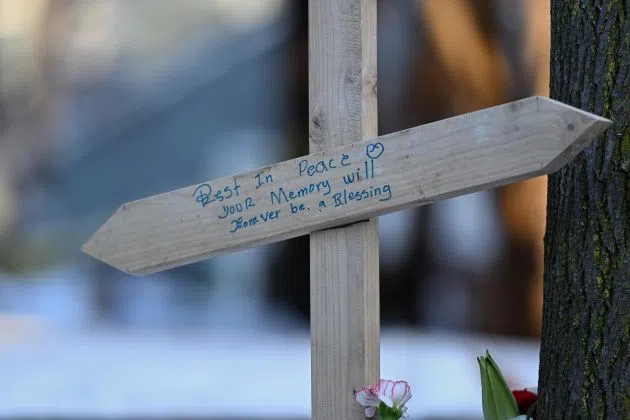 Rest In Peace
your Memory will
Forever be. a Blessing